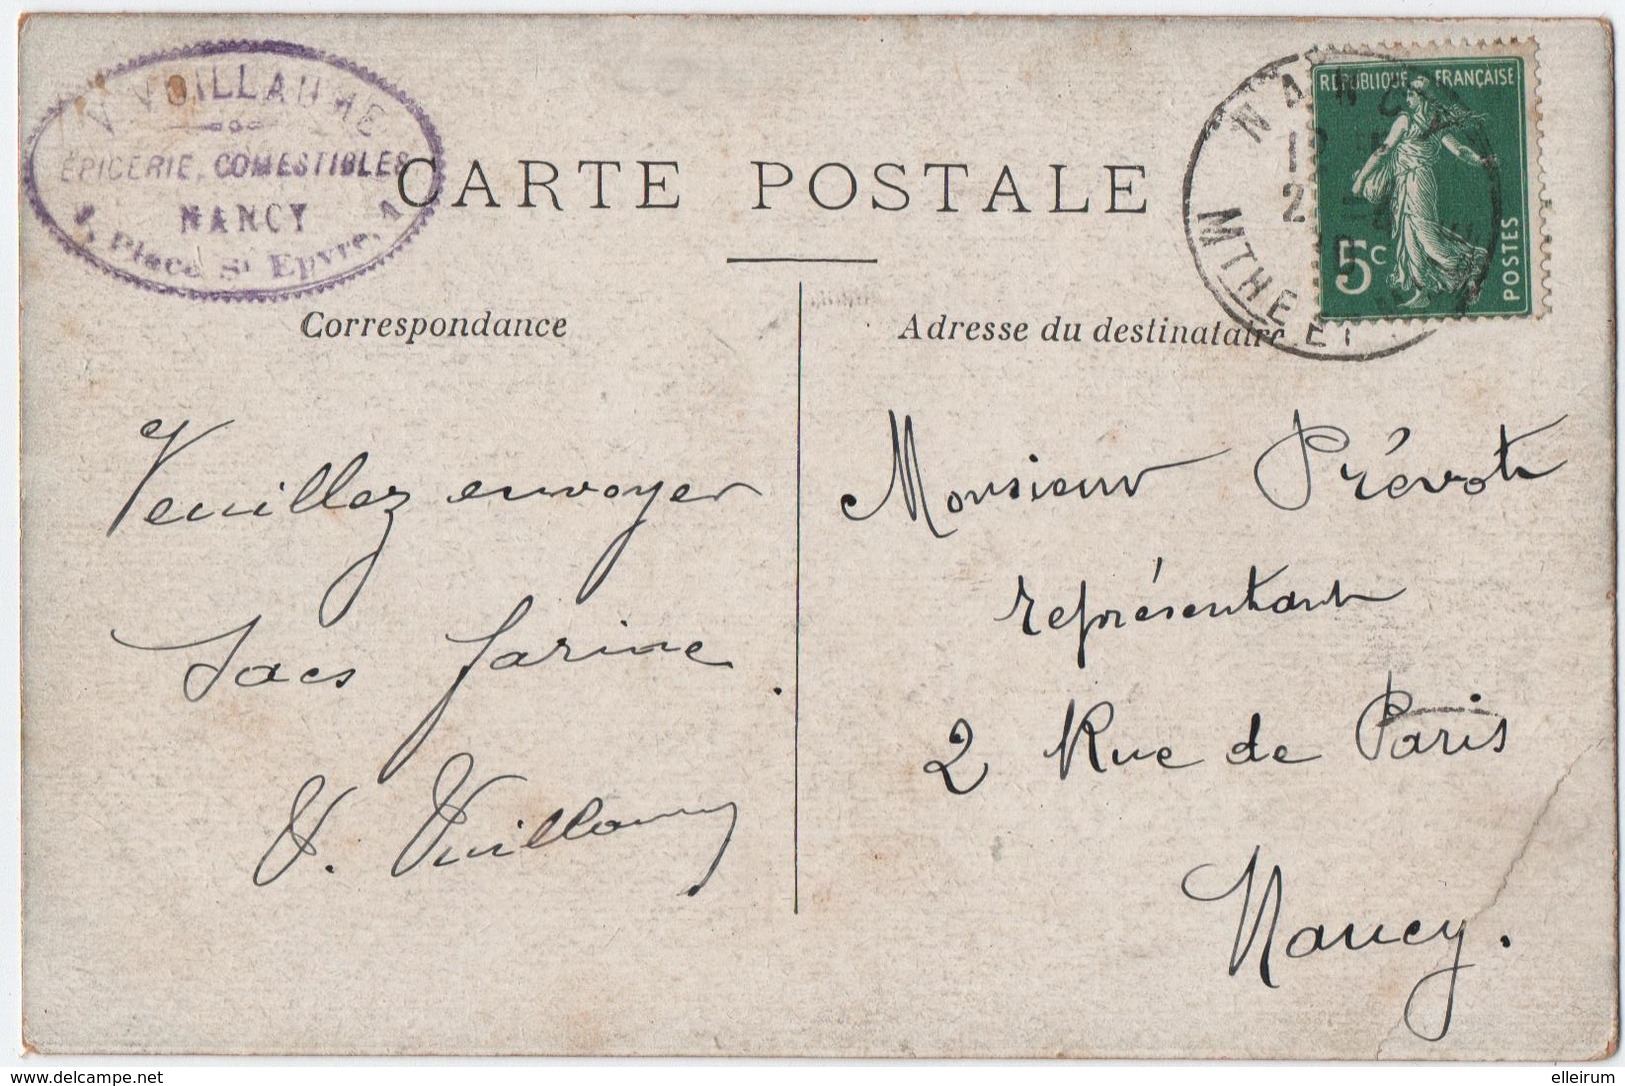 V. VUILLAUME
ÉPICERIE, COMESTIBLES
NANCY
Place St Epvre,
CARTE POSTALE
NANCY
MTHE ET
REPUBLIQUE FRANÇAISE
5c
POSTES
Correspondance
Adresse du destinataire
Veuillez envoyer
sacs farine.
V. Vuillaume
Monsieur Prévot
représentant
2 Rue de Paris
Nancy.
www.delcampe.net
elleirum